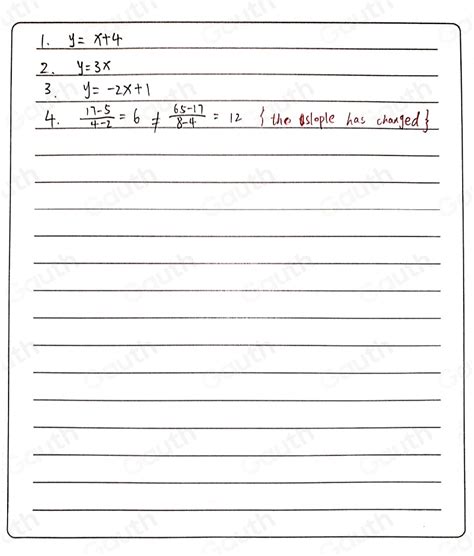 1. y = x+4
2. y=3x
3. y = -2x+1
4. 17-5/4-2 = 6 ≠ 65-17/8-4 = 12 { the slople has changed }
Gauth